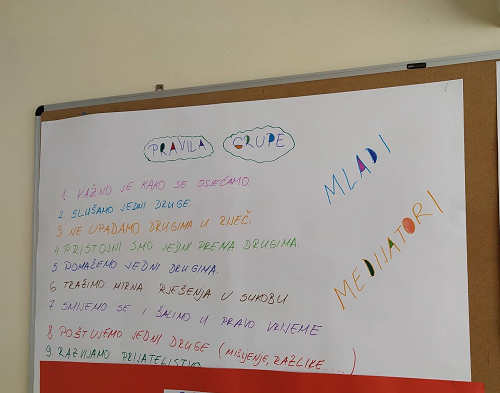 PRAVILA GRUPE
1. VAŽNO JE KAKO SE OSJEĆAMO.
2. SLUŠAMO JEDNI DRUGE
3. NE UPADAMO DRUGIMA U RIJEČ.
4. PRISTOJNI SMO JEDNI PREMA DRUGIMA.
5. POMAŽEMO JEDNI DRUGIMA.
6. TRAŽIMO MIRNA RJEŠENJA U SUKOBU
7. SMIJEMO SE I ŠALIMO U PRAVO VRIJEME
8. POŠTUJEMO JEDNI DRUGE (MIŠLJENJE, RAZLIKE....)
9. RAZVIJAMO PRIJATELJSTVO
MLADI
MEDIJATORI